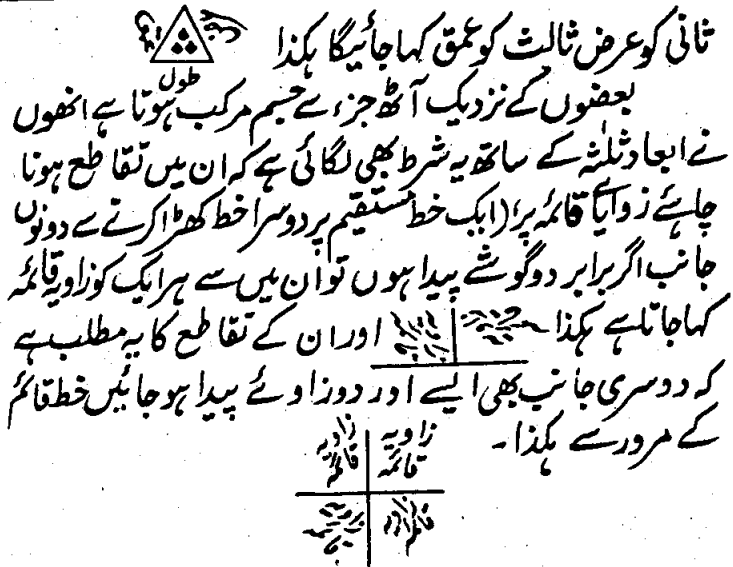 ثانی کو عرض ثالث کو عمق کہا جائیگا ہکذا
طول
بعضوں کے نزدیک آٹھ جزء سے جسم مرکب ہوتا ہے انھوں
نے ابعاد ثلٰثہ کے ساتھ یہ شرط بھی لگائی ہے کہ ان میں تقاطع ہونا
چاہئے زوایائے قائمہ پر، (ایک خط مستقیم پر دوسرا خط کھڑا کرنے سے دونوں
جانب اگر برابر دو گوشے پیدا ہوں تو ان میں سے ہر ایک کو زاویہ قائمہ
کہا جاتا ہے ہکذا۔ اور ان کے تقاطع کا یہ مطلب ہے
کہ دوسری جانب بھی ایسے اور دو زاوئے پیدا ہو جائیں خط قائم
کے مرور سے ہکذا۔
زاویہ قائمہ
زاویہ قائمہ